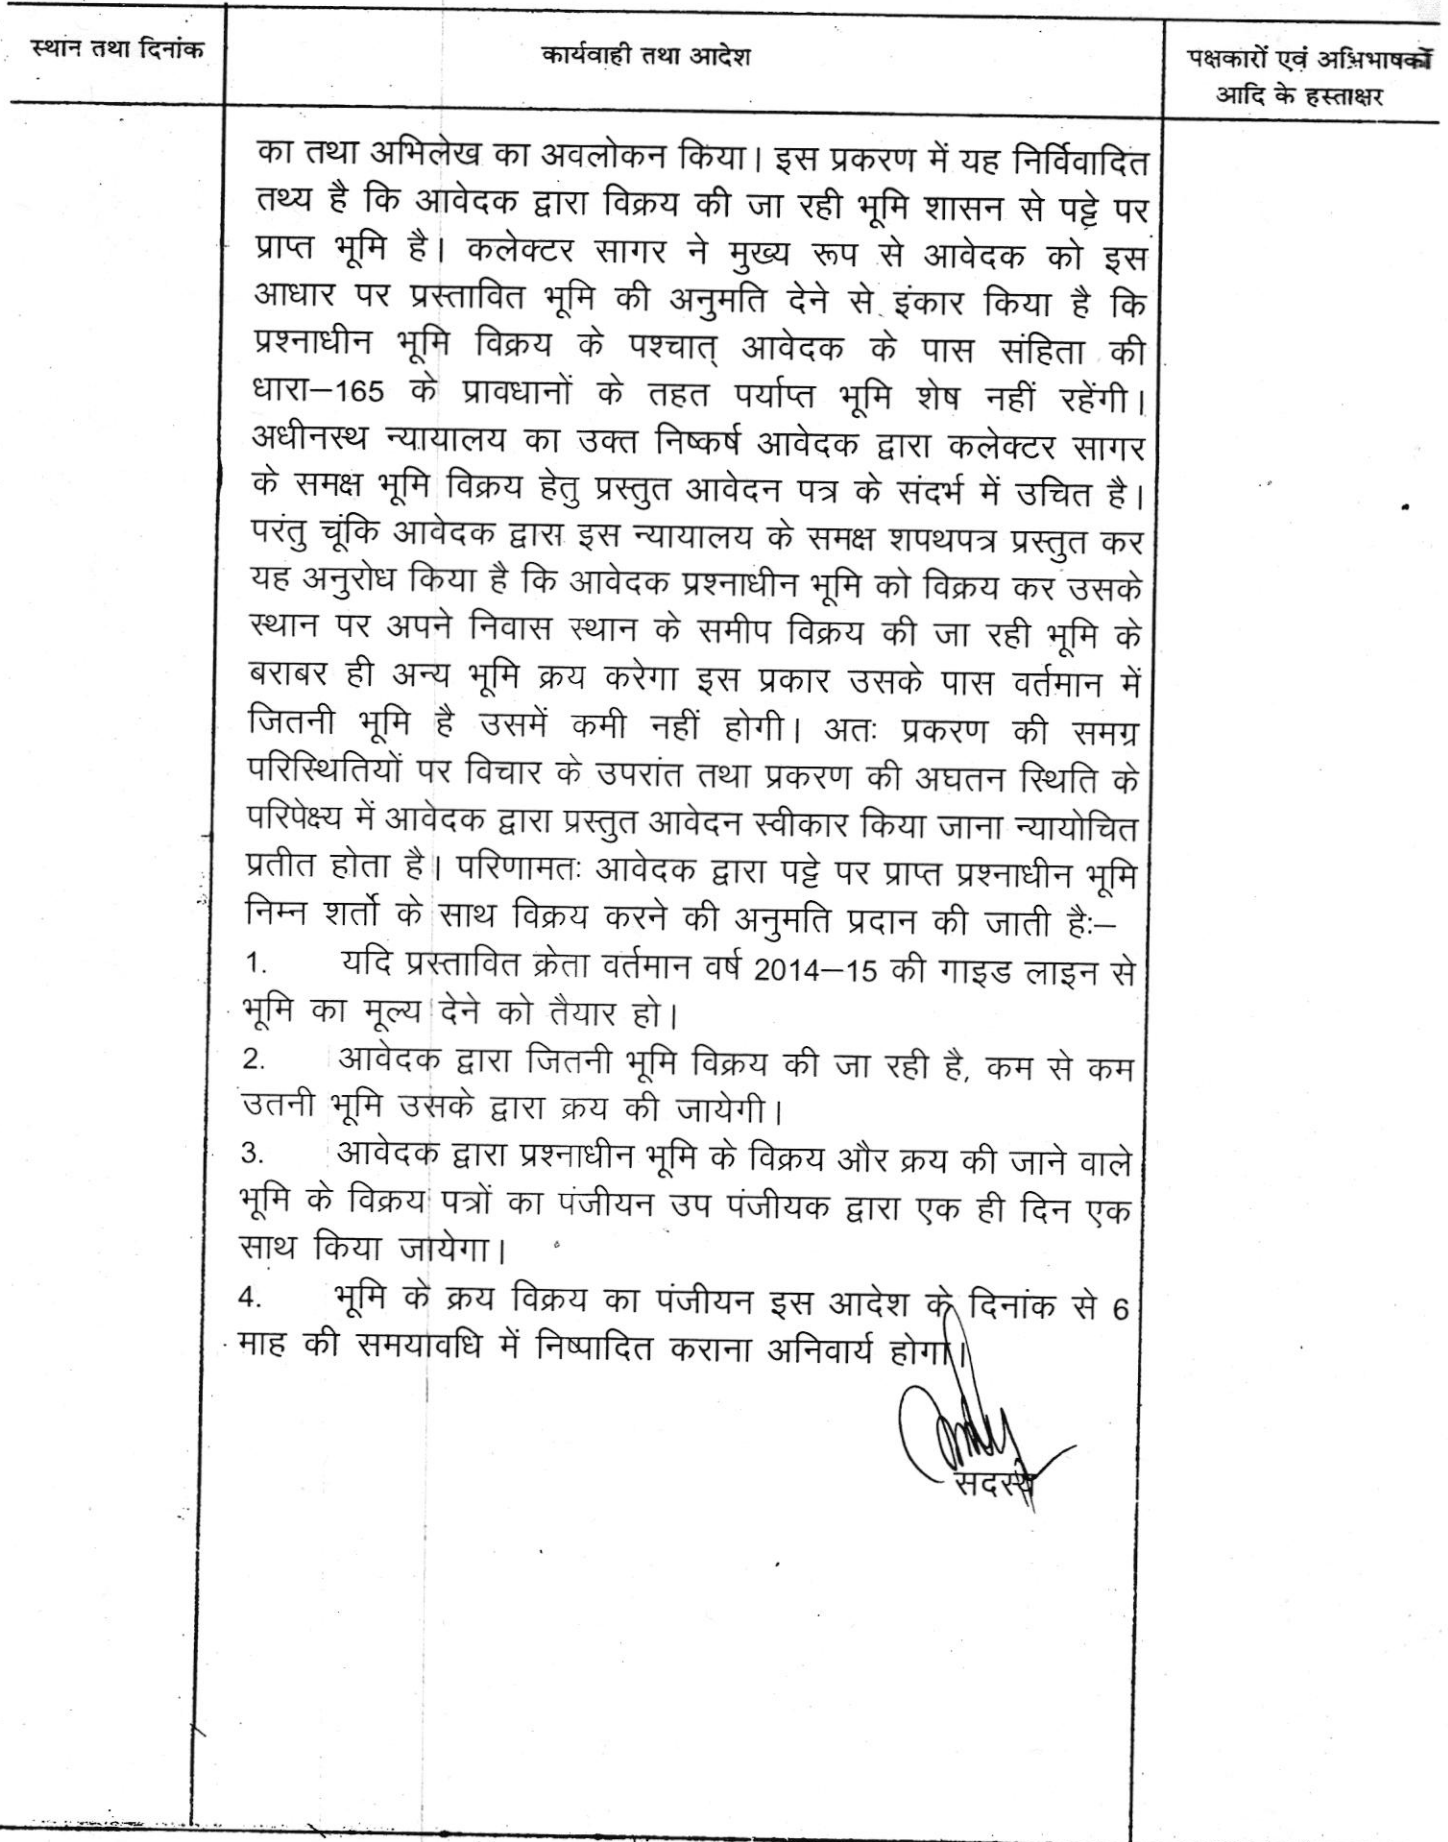 स्थान तथा दिनांक
कार्यवाही तथा आदेश
पक्षकारों एवं अभिभाषकों
आदि के हस्ताक्षर
का तथा अभिलेख का अवलोकन किया। इस प्रकरण में यह निर्विवादित
तथ्य है कि आवेदक द्वारा विक्रय की जा रही भूमि शासन से पट्टे पर
प्राप्त भूमि है। कलेक्टर सागर ने मुख्य रूप से आवेदक को इस
आधार पर प्रस्तावित भूमि की अनुमति देने से इंकार किया है कि
प्रश्नाधीन भूमि विक्रय के पश्चात् आवेदक के पास संहिता की
धारा–165 के प्रावधानों के तहत पर्याप्त भूमि शेष नहीं रहेंगी।
अधीनस्थ न्यायालय का उक्त निष्कर्ष आवेदक द्वारा कलेक्टर सागर
के समक्ष भूमि विक्रय हेतु प्रस्तुत आवेदन पत्र के संदर्भ में उचित है।
परंतु चूंकि आवेदक द्वारा इस न्यायालय के समक्ष शपथपत्र प्रस्तुत कर
यह अनुरोध किया है कि आवेदक प्रश्नाधीन भूमि को विक्रय कर उसके
स्थान पर अपने निवास स्थान के समीप विक्रय की जा रही भूमि के
बराबर ही अन्य भूमि क्रय करेगा इस प्रकार उसके पास वर्तमान में
जितनी भूमि है उसमें कमी नहीं होगी। अतः प्रकरण की समग्र
परिस्थितियों पर विचार के उपरांत तथा प्रकरण की अघतन स्थिति के
परिपेक्ष्य में आवेदक द्वारा प्रस्तुत आवेदन स्वीकार किया जाना न्यायोचित
प्रतीत होता है। परिणामतः आवेदक द्वारा पट्टे पर प्राप्त प्रश्नाधीन भूमि
निम्न शर्तो के साथ विक्रय करने की अनुमति प्रदान की जाती हैः–
1. यदि प्रस्तावित क्रेता वर्तमान वर्ष 2014–15 की गाइड लाइन से
भूमि का मूल्य देने को तैयार हो।
2. आवेदक द्वारा जितनी भूमि विक्रय की जा रही है, कम से कम
उतनी भूमि उसके द्वारा क्रय की जायेगी।
3. आवेदक द्वारा प्रश्नाधीन भूमि के विक्रय और क्रय की जाने वाले
भूमि के विक्रय पत्रों का पंजीयन उप पंजीयक द्वारा एक ही दिन एक
साथ किया जायेगा।
4. भूमि के क्रय विक्रय का पंजीयन इस आदेश के दिनांक से 6
माह की समयावधि में निष्पादित कराना अनिवार्य होगा।
सदस्य